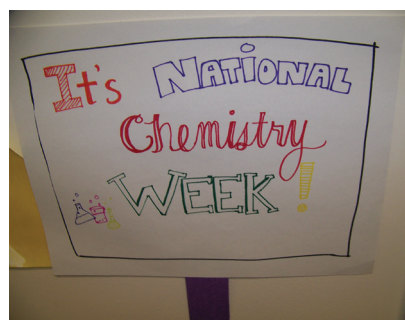 It's NATiONAL
Chemistry
WEEK!